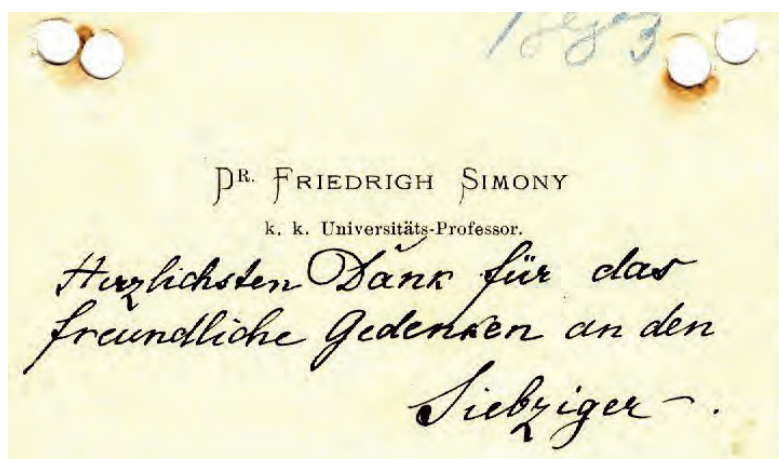 DR. FRIEDRIGH SIMONY
k. k. Universitäts-Professor.
Herzlichsten Dank für das
freundliche Gedenken an den
Siebziger – .